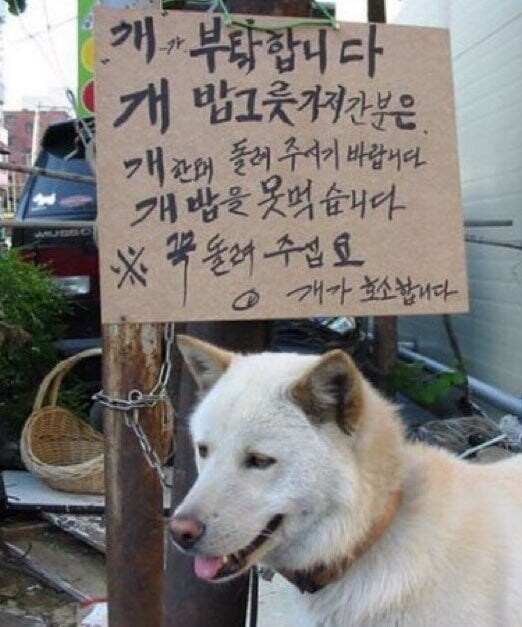 개가 부탁합니다
개 밥그릇 가져간분은
개한테 돌려 주시기 바랍니다
개밥을 못먹습니다
※ 꼭 돌려 주셥요
개가 호소합니다
MUSSO